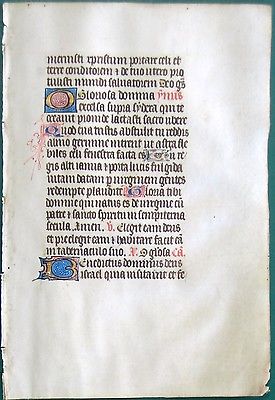 meruisti xpristum portare celi et
terre conditorem 7 de tuo utero pro
tulisti mundi salvatorem Deo gᵃs
O Gloriosa domina ymus
excelsa supra sydera qui te
creavit provide lactasti sacro ubere
Quod eva tristis abstulit tu reddis
almo germine intrent ut astra fle
biles celi fenestra facta es Tu re
gis alti ianua et porta lucis fulgida
vitam datam per virginem gentes
redempte plaudite Gloria tibi
domine qui natus es de virgine cu
patre et sancto spiritu in sempiterna
secula. Amen. V. Elegit eam deus
et preelegit eam et habitare facit ea
in tabernaculo suo. V. O glosa Ca.
Benedictus dominus deus
israel quia visitavit et fe